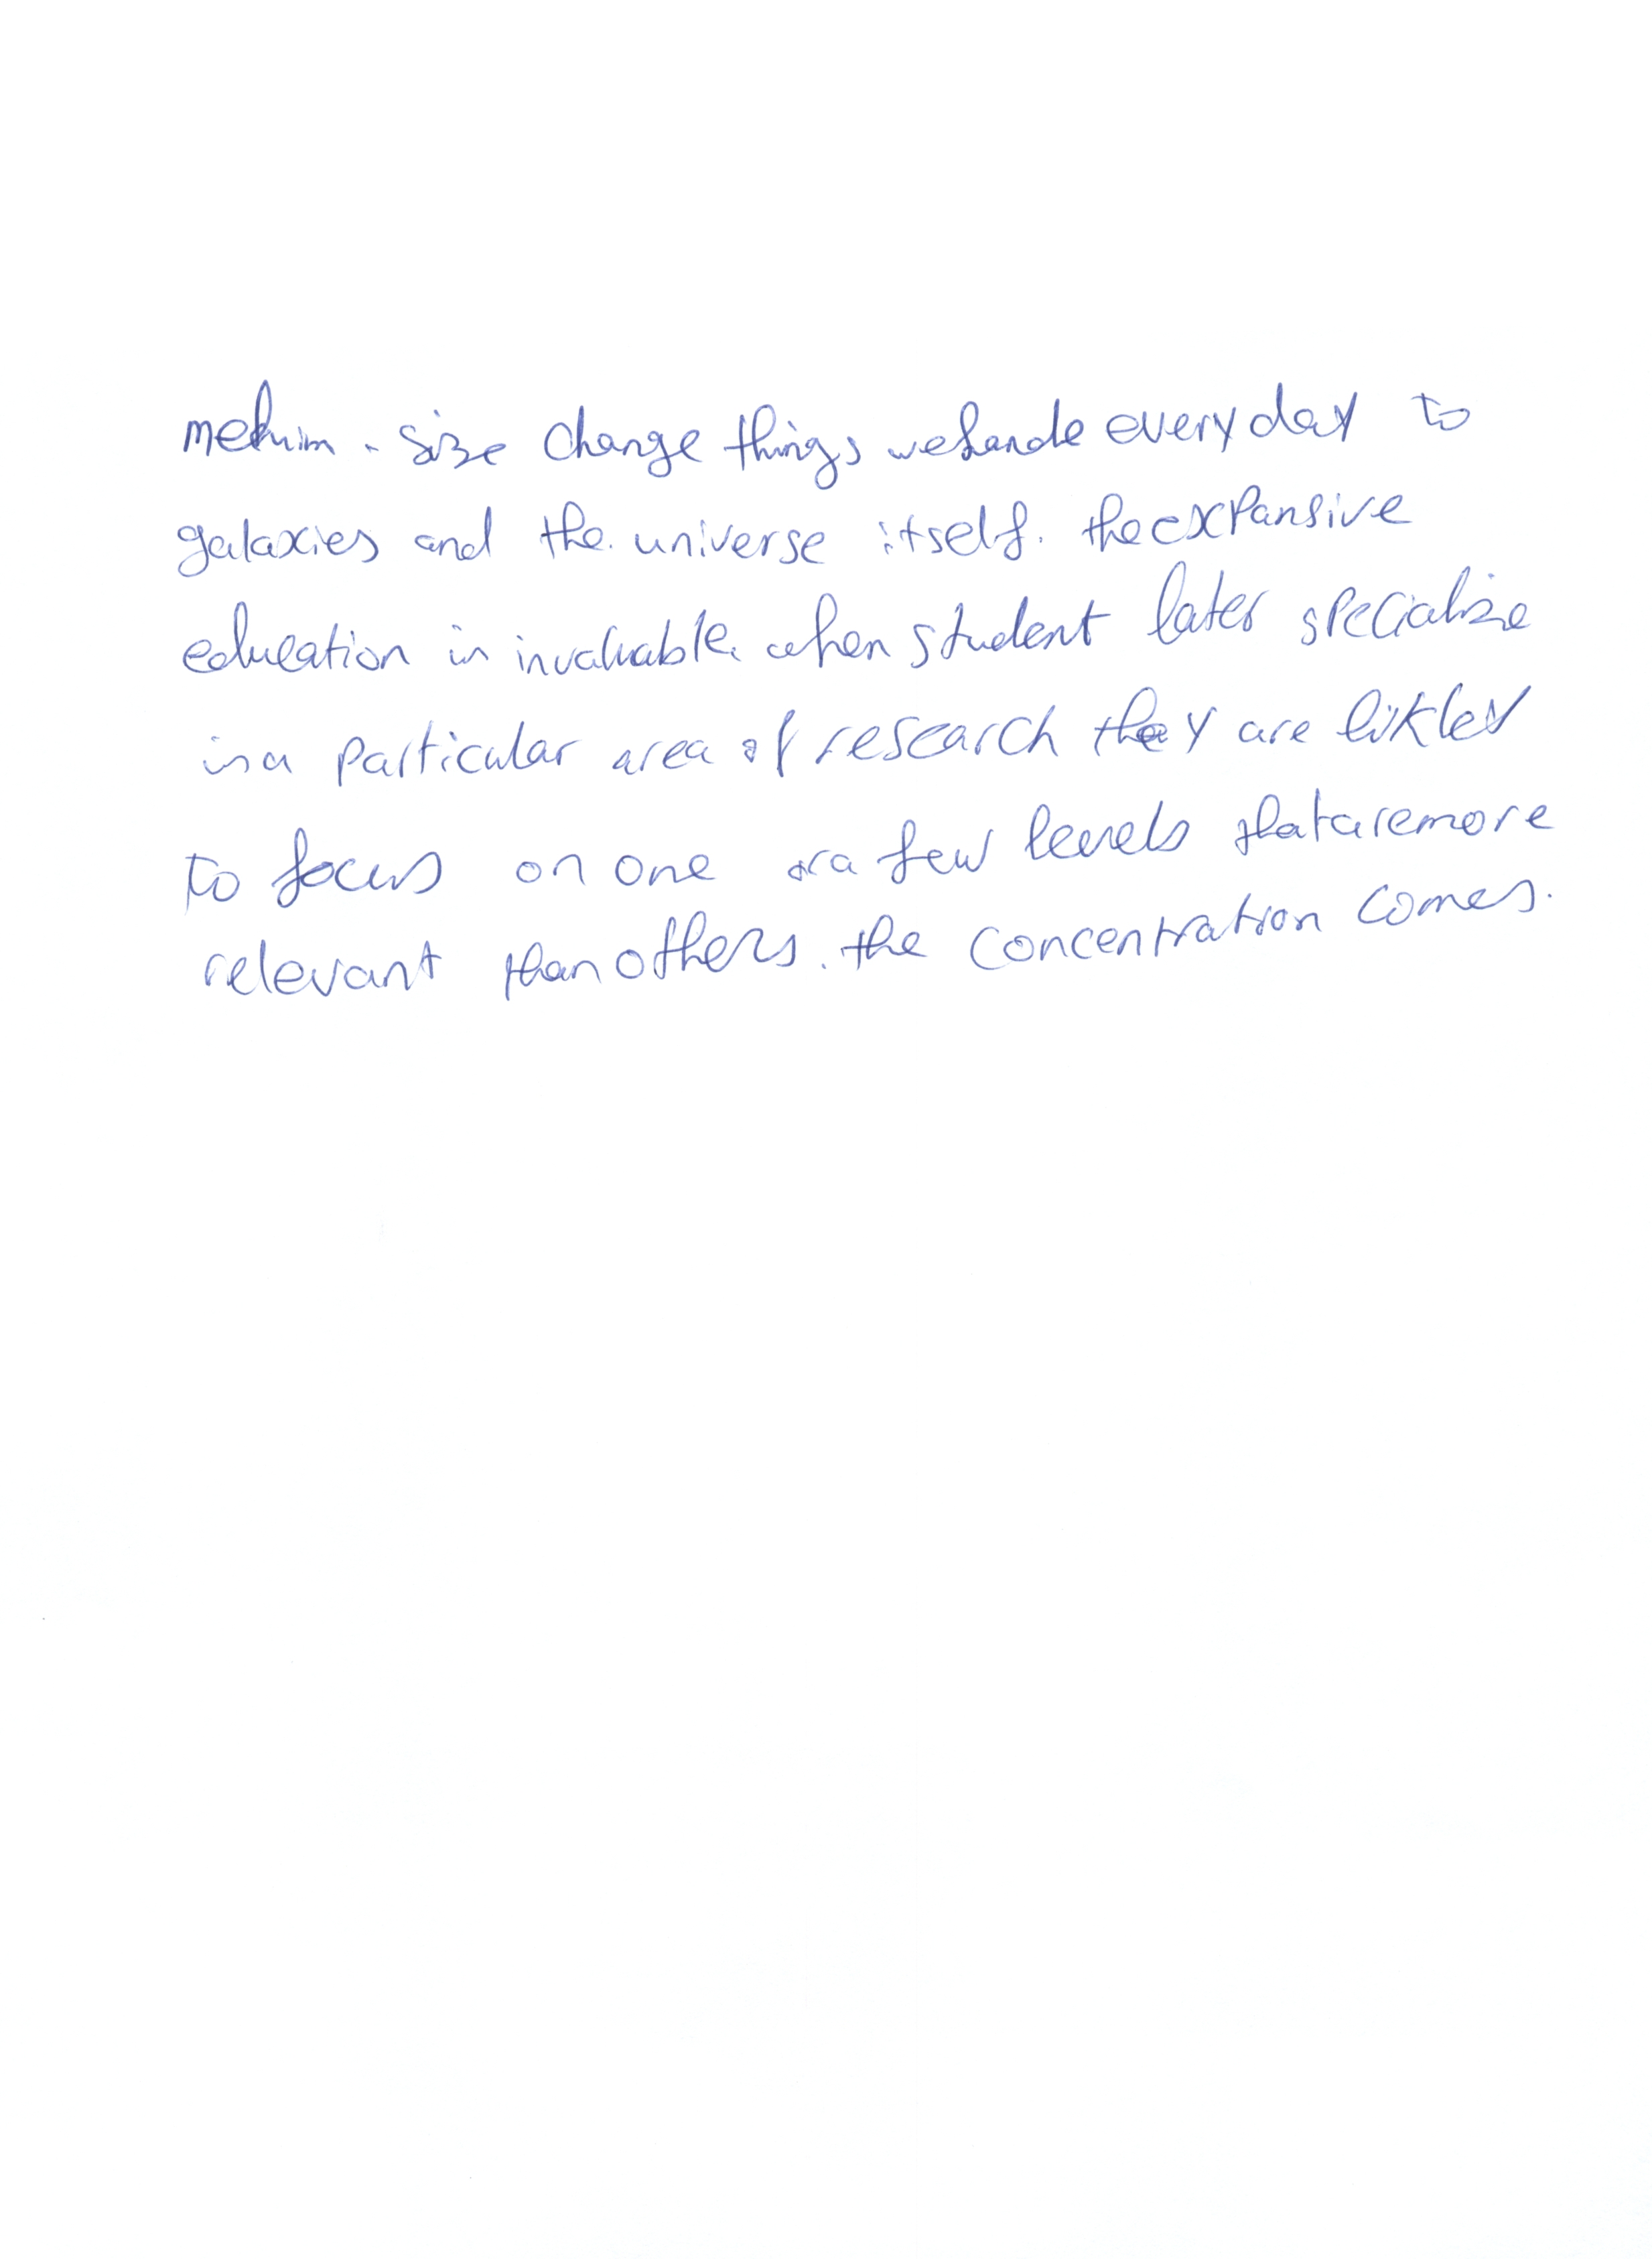 medium - size change things we hande every day to
galaxies and the universe itself. the expansive
education in invaluable. when student later specialize
in a particular area of research they are likley
to focus on one or a few levels that are more
relevant than others. the concentration comes.